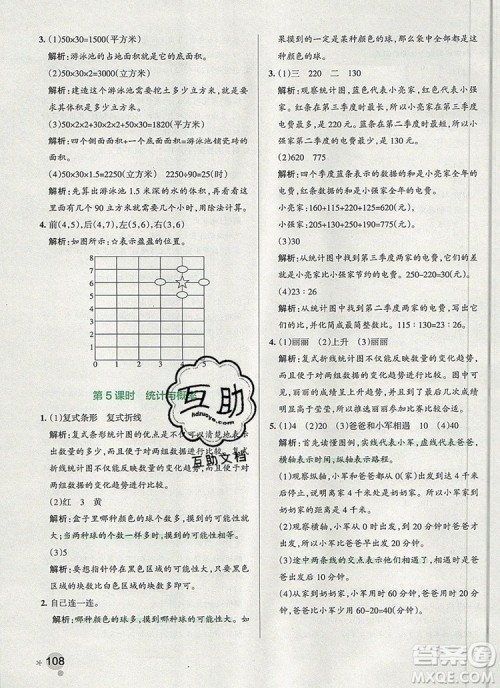 3. (1)50×30=1500(平方米)
解析:游泳池的占地面积就是它的底面积。
(2)50×30×2=3000(立方米)
解析:建造这个游泳池需要挖土多少立方米,
就是求其体积。
(3)50×2×2+30×2×2+50×30=1820(平方米)
解析:四个侧面的面积加底面面积即游泳池铺瓷砖的
面积。
(4)50×30×1.5=2250(立方米) 2250÷90=25(时)
解析:先算出游泳池1.5米深的水的体积,再计算体积
里面有几个90立方米就需要几小时。
4. 前(4,5),后(4,7),左(3,6),右(5,6)
解析:如图所示:☆表示盈盈的位置。
8
7
6
5
4
3
2
1
0 1 2 3 4 5
第5课时 统计与
1. (1)复式条形 复式折线
解析:复式条形统计图的优点是不
而且便于对两组数据进行比较。复
折线统计图不仅能看出数量的变化趋势,而且便于对
两组数据的变化趋势进行比较。
(2)红 3 黄
解析:盒子里哪种颜色的球个数多,摸到的可能性就
大;当两种球的个数一样多时,摸到的可能性一样大。
(3)5
解析:要想指针停在黑色区域的可能性大,黑色
区域的块数比白色区域的块数多即可。
2. 自己连一连。
解析:哪种颜色的球多,摸到哪种球的可能性大。如
果摸到的一定是某种颜色的球,
中都是这种颜色的球。
3. (1)三 220 二 130
解析:观察统计图,蓝色代表小亮家,
家,由图中数据可得,小亮家在第三季度
是220元;小强家在第二季度电费最少,
(2)795 710
解析:四个季度蓝条表示的数据的和是小亮家
费,四个季度灰条表示的数据的和是小强家全
小亮家:160+115+220+300=795(元)
小强家:120+130+250+210=710(元)
(3)30
解析:从统计图中找到第三季度两家的电费,
家比小强家节约的电费。250-220=30(元)
(4)23∶26
解析:从统计图中找到第二季度两家的电费,
是小亮家与小强家电费的比,115∶130=23∶26。
4. (1)丽丽 (2)上升 (3)丽丽
解析:复式折线统计图能看出数据的变化趋势,
于对两组数据的变化趋势进行比较。由图可知
两人的成绩都呈上升趋势,但丽丽的成绩提高得
所以丽丽如果继续比赛比赛比较有优势。
5. (1)20 (2)4 (3)爸爸和小军相遇 (4)
解析:首先读懂图例,实线表示爸爸,虚线表示
轴表示时间,纵轴表示路程。
(1)观察横轴,小军从0(家)开始出发到达4千米
到达奶奶家用了20分钟。
(2)观察纵轴,爸爸从0(家)开始出发到达4千米
奶奶家,所以小军家离奶奶家4千米。
(3)途中两条线的交点表示他们在途中相遇了。
(4)观察横轴,小军到达奶奶家的时间比爸爸
前60-20=40(分)。
以从奶奶家回家,爸爸
用60-40=20(分),小军
比小军快。
互助
hdzuoye.com
互助文档
108
答案圈
MXQE.COM